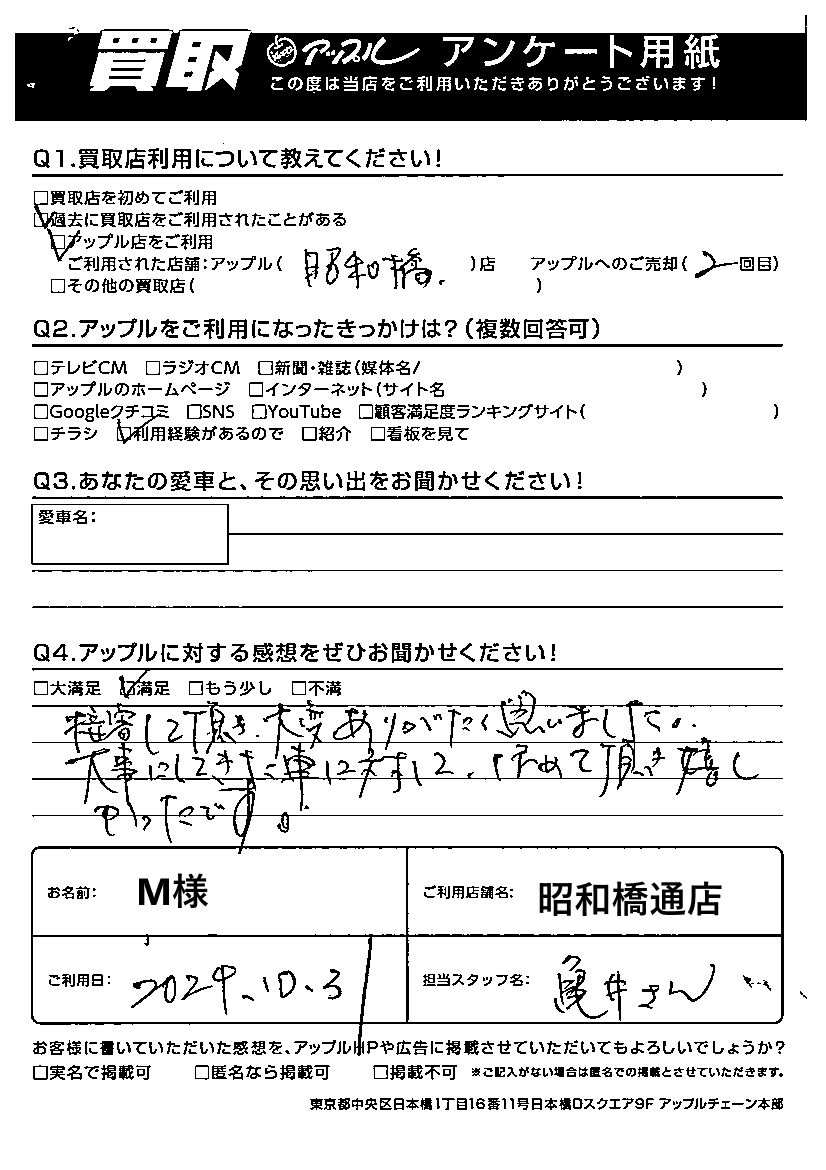 買取 アップル アンケート用紙
この度は当店をご利用いただきありがとうございます!
Q1.買取店利用について教えてください!
□買取店を初めてご利用
☑過去に買取店をご利用されたことがある
☑アップル店をご利用
ご利用された店舗:アップル( 昭和橋. )店 アップルへのご売却( 2 回目)
□その他の買取店( )
Q2.アップルをご利用になったきっかけは?(複数回答可)
□テレビCM □ラジオCM □新聞・雑誌(媒体名/ )
□アップルのホームページ □インターネット(サイト名 )
□Googleクチコミ □SNS □YouTube □顧客満足度ランキングサイト( )
□チラシ ☑利用経験があるので □紹介 □看板を見て
Q3.あなたの愛車と、その思い出をお聞かせください!
愛車名:
Q4.アップルに対する感想をぜひお聞かせください!
□大満足 ☑満足 □もう少し □不満
接客して頂き、大変ありがたく思いました。
大事にしてきた車に対して、ほめて頂き嬉し
かったです。
お名前: M様 ご利用店舗名: 昭和橋通店
ご利用日: 2024.10.31 担当スタッフ名: 亀井さん
お客様に書いていただいた感想を、アップルHPや広告に掲載させていただいてもよろしいでしょうか?
□実名で掲載可 □匿名なら掲載可 □掲載不可 ※ご記入がない場合は匿名での掲載とさせていただきます。
東京都中央区日本橋1丁目16番11号日本橋Dスクエア9F アップルチェーン本部